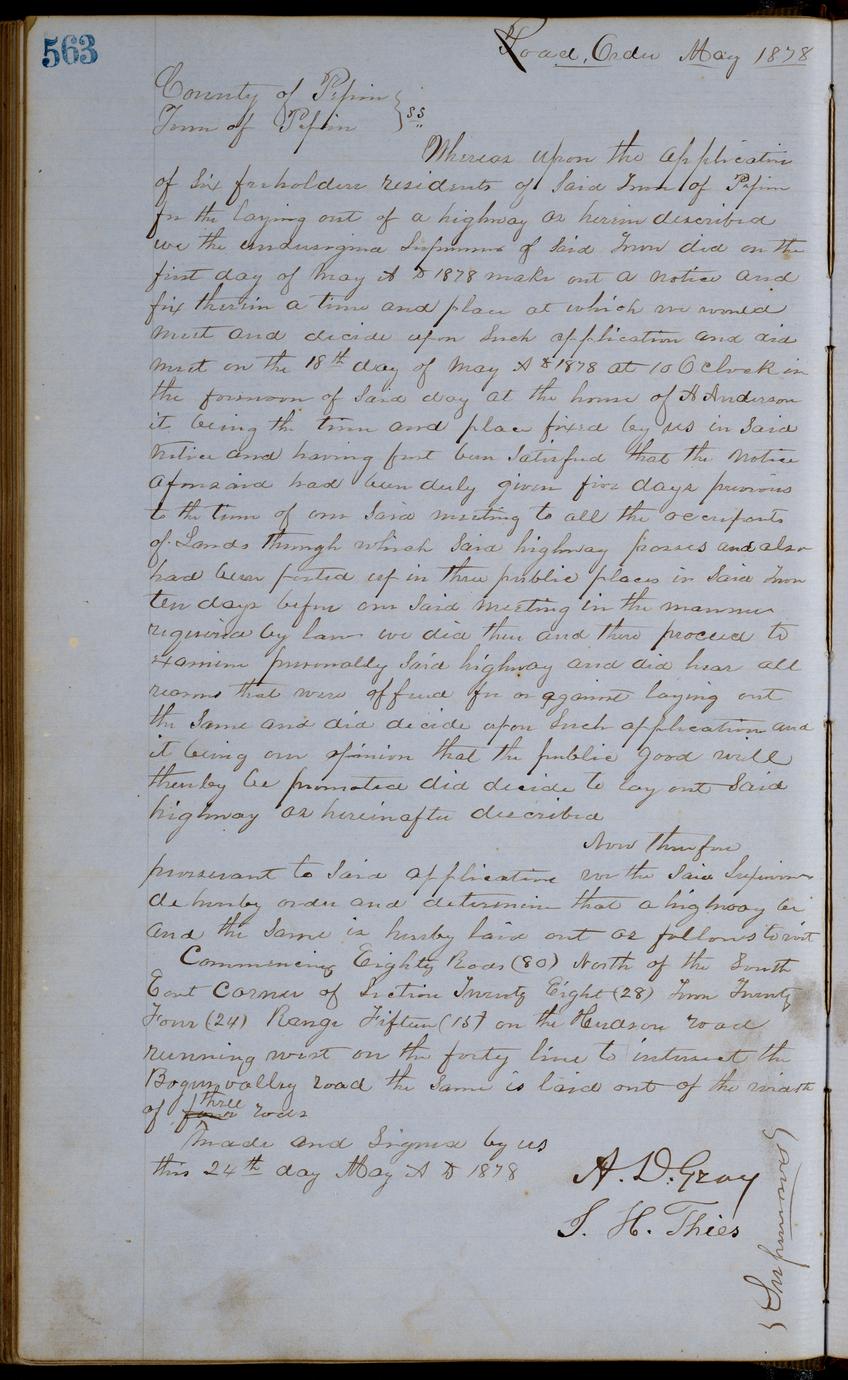 563
Road Order May 1878
County of Pepin } ss
Town of Pepin
Whereas upon the application
of six freeholders residents of Said Town of Pepin
for the laying out of a highway as herein described
we the undersigned Supervisors of Said Town did on the
first day of May A D 1878 make out a Notice and
fix therein a time and place at which we would
meet and decide upon Such application and did
meet on the 18th day of May A D 1878 at 10 O clock in
the forenoon of Said day at the house of A Anderson
it being the time and place fixed by us in Said
Notice and having first been Satisfied that the Notice
aforesaid had been duly given five days previous
to the time of our Said meeting to all the occupants
of Lands through which Said highway passes and also
had been posted up in three public places in Said Town
ten days before our Said meeting in the manner
required by law we did then and there proceed to
examine personally Said highway and did hear all
reasons that were offered for or against laying out
the Same and did decide upon Such application and
it being our opinion that the public good will
thereby be promoted did decide to lay out Said
highway as hereinafter described
Now therefore
pursuant to Said application we the Said Supervisors
do hereby order and determine that a highway be
and the Same is hereby laid out as follows to wit
Commencing Eighty Rods (80) North of the South
East Corner of Section Twenty Eight (28) Town Twenty
Four (24) Range Fifteen (15) on the Hudson road
running west on the forty line to intersect the
Bogus valley road the Same is laid out of the width
of four three rods
Made and Signed by us
this 24th day May A D 1878
A. D. Gray
S. H. Thies
} Supervisors }